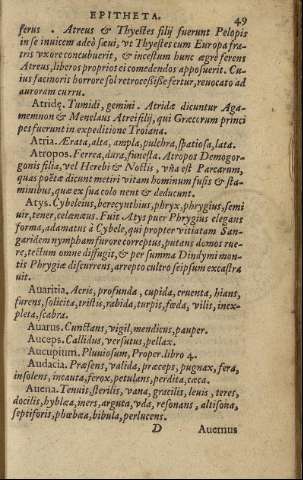 EPITHETA. 49
ferus . Atreus & Thyestes filij fuerunt Pelopis
in se inuicem adeò sæui, vt Thyestes cum Europa fra-
tris vxore concubuerit, & incestum hunc ægre ferens
Atreus, liberos proprios ei comedendos apposuerit. Cu-
ius facinoris horrore sol retrocessisse fertur, reuocato ad
auroram curru.
Atridę. Tumidi, gemini. Atridæ dicuntur Aga-
memnon & Menelaus Atrei filij, qui Græcorum princi
pes fuerunt in expeditione Troiana.
Atria. Ærata, alta, ampla, pulchra, spatiosa, lata.
Atropos. Ferrea, dura, funesta. Atropos Demogor-
gonis filia, vel Herebi & Noctis, vna est Parcarum,
quas poëtæ dicunt metiri vitam hominum fusis & sta-
minibus, quæ ex sua colo nent & deducunt.
Atys. Cybeleius, berecynthius, phryx, phrygius, semi
uir, tener, celænæus. Fuit Atys puer Phrygius elegans
forma, adamatus à Cybele, qui propter vitiatam San-
garidem nympham furore correptus, putans domos rue-
re, tectum omne diffugit, & per summa Dindymi mon-
tis Phrygiæ discurrens, arrepto cultro seipsum excastra
uit.
Auaritia. Acris, profunda, cupida, cruenta, hians,
furens, solicita, tristis, rabida, turpis, fœda, vilis, inex-
pleta, scabra.
Auarus. Cunctans, vigil, mendicus, pauper.
Auceps. Callidus, versutus, pellax.
Aucupium. Pluuiosum, Proper. libro 4.
Audacia. Præsens, valida, præceps, pugnax, fera,
insolens, incauta, ferox, petulans, perdita, cæca.
Auena. Tenuis, sterilis, vana, gracilis, leuis, teres,
docilis, hyblæa, iners, arguta, vda, resonans, altisona,
septiforis, phœbæa, bibula, perlucens.
D Auernus